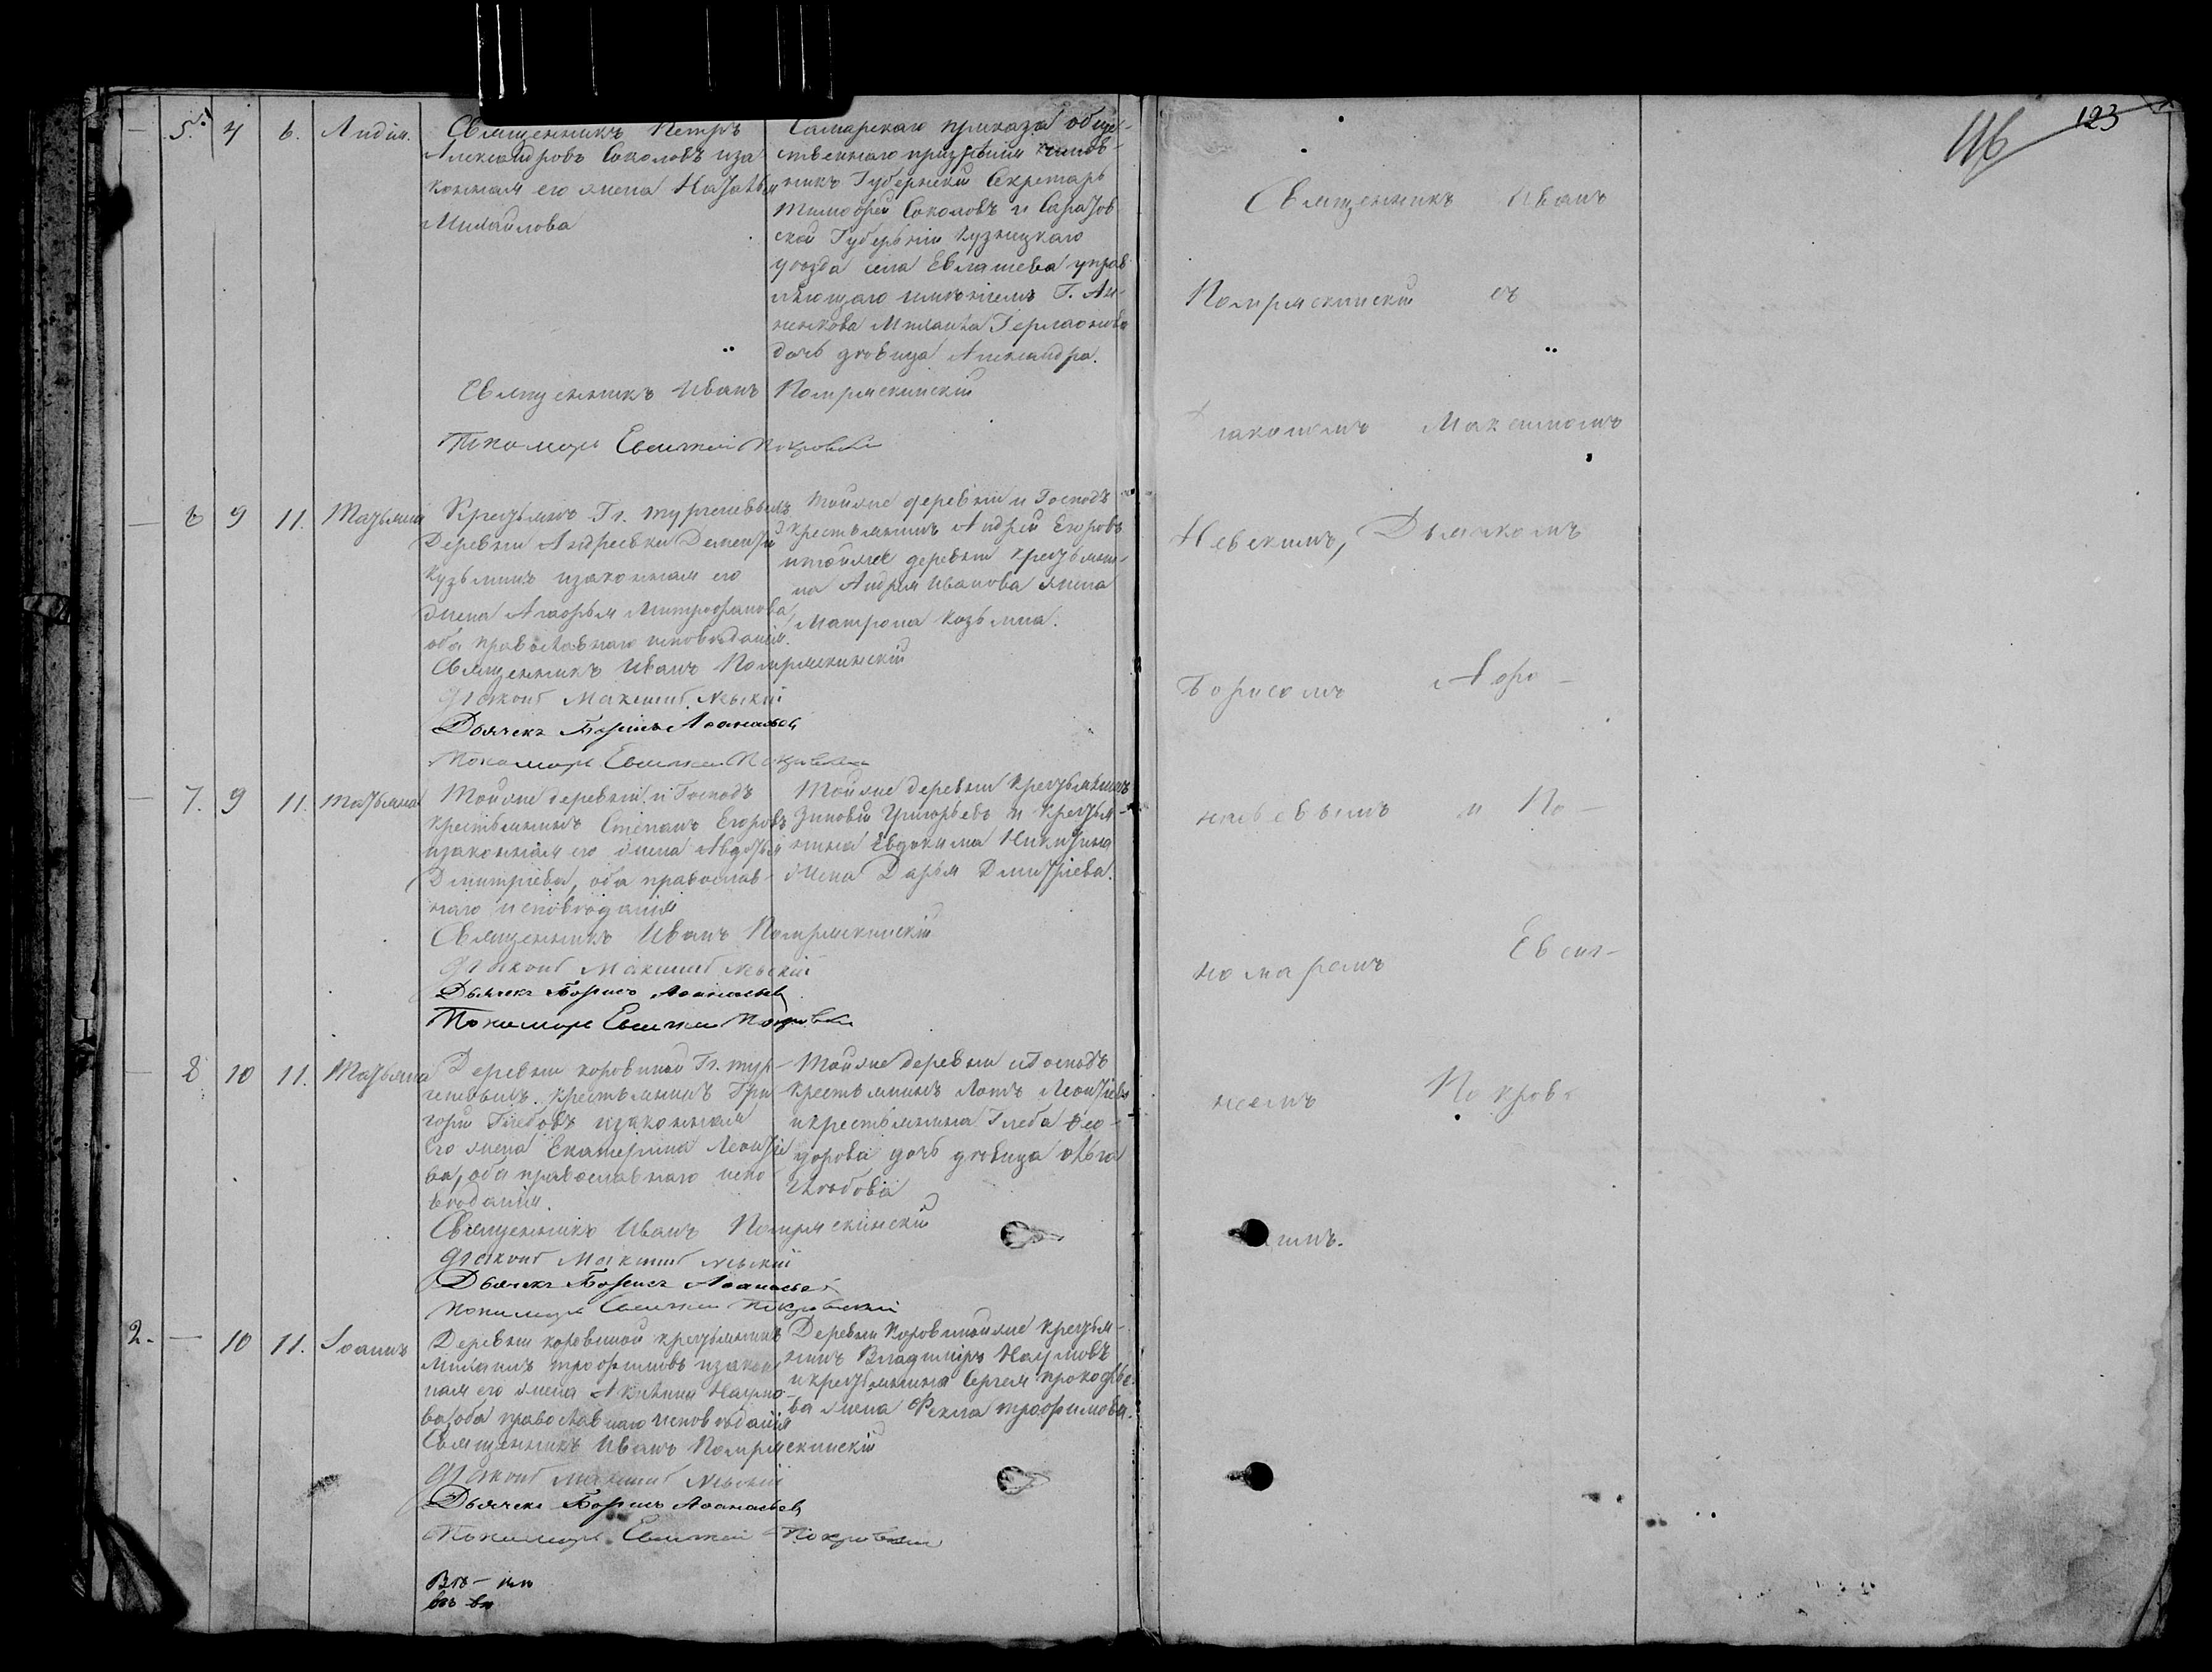 123
116
5. 4 6. Лидія.
Священникъ Петръ
Александровъ Соколовъ и за
конная его жена Наталья
Михайлова
Самарскаго приказа обще-
ственнаго призрѣнія чинов-
никъ Губернскій Секретарь
Тимофей Соколовъ и Саратов
ской Губерніи Кузнецкаго
уѣзда села Евлашева управ
ляющаго имѣніемъ Г. Ан-
ненкова Михаила
дочь дѣвица Александра.
Священникъ Иванъ Помряскинскій
Пономарь Евгеній Покровскій
6 9 11. Татьяна
Крестьянъ Гг. Тургеневыхъ
Деревни Андреевки Дементій
Кузьминъ и законная его
жена Агафья Митрофанова
оба православнаго исповѣданія.
Тойже деревни и Господъ
крестьянинъ Андрей Егоровъ
и тойже деревни крестьяни-
на Андрея Иванова жена
Матрона Козьмина.
Священникъ Иванъ Помряскинскій
Діаконъ Максимъ Невскій
Дьячекъ Борисъ Аѳанасьевъ
Пономарь Евгеній Покровскій
7. 9 11. Татьяна
Тойже деревни и Господъ
крестьянинъ Степанъ Егоровъ
и законная его жена Авдотья
Дмитріева, оба православ-
наго исповѣданія
Тойже деревни крестьянинъ
Зиновій Григорьевъ и крестья-
нина Евдокима Никитина
жена Дарья Дмитріева.
Священникъ Иванъ Помряскинскій
Діаконъ Максимъ Невскій
Дьячекъ Борисъ Аѳанасьевъ
Пономарь Евгеній Покровскій
8 10 11. Татьяна
Деревни Коровиной Гг. Тур-
геневыхъ крестьянинъ Гри
горій Глебовъ и законная
его жена Екатерина Леонтіе
ва, оба православнаго испо
вѣданія.
Тойже деревни и Господъ
крестьянинъ Лотъ Леонтіевъ
и крестьянина Глеба Ѳео-
дорова дочь дѣвица Ольга
Глѣбова
Священникъ Иванъ Помряскинскій
Діаконъ Максимъ Невскій
Дьячекъ Борисъ Аѳанасьевъ
Пономарь Евгеній Покровскій
2. — 10 11. Іоаннъ
Деревни Коровиной крестьянинъ
Михаилъ Трофимовъ и закон
ная его жена Акилина Наумо-
ва, оба православнаго исповѣданія
Деревни Коровинойже крестья-
нинъ Владиміръ Наумовъ
и крестьянина Сергея Прокофье
ва жена Фекла Трофимова.
Священникъ Иванъ Помряскинскій
Діаконъ Максимъ Невскій
Дьячекъ Борисъ Аѳанасьевъ
Пономарь Евгеній Покровскій
Священникъ Иванъ
Помряскинскій съ
іакономъ Максимомъ
Невскимъ, Дьячкомъ
Борисомъ Аѳо-
насьевымъ и По-
номаремъ Евген-
іемъ Покровс
имъ.